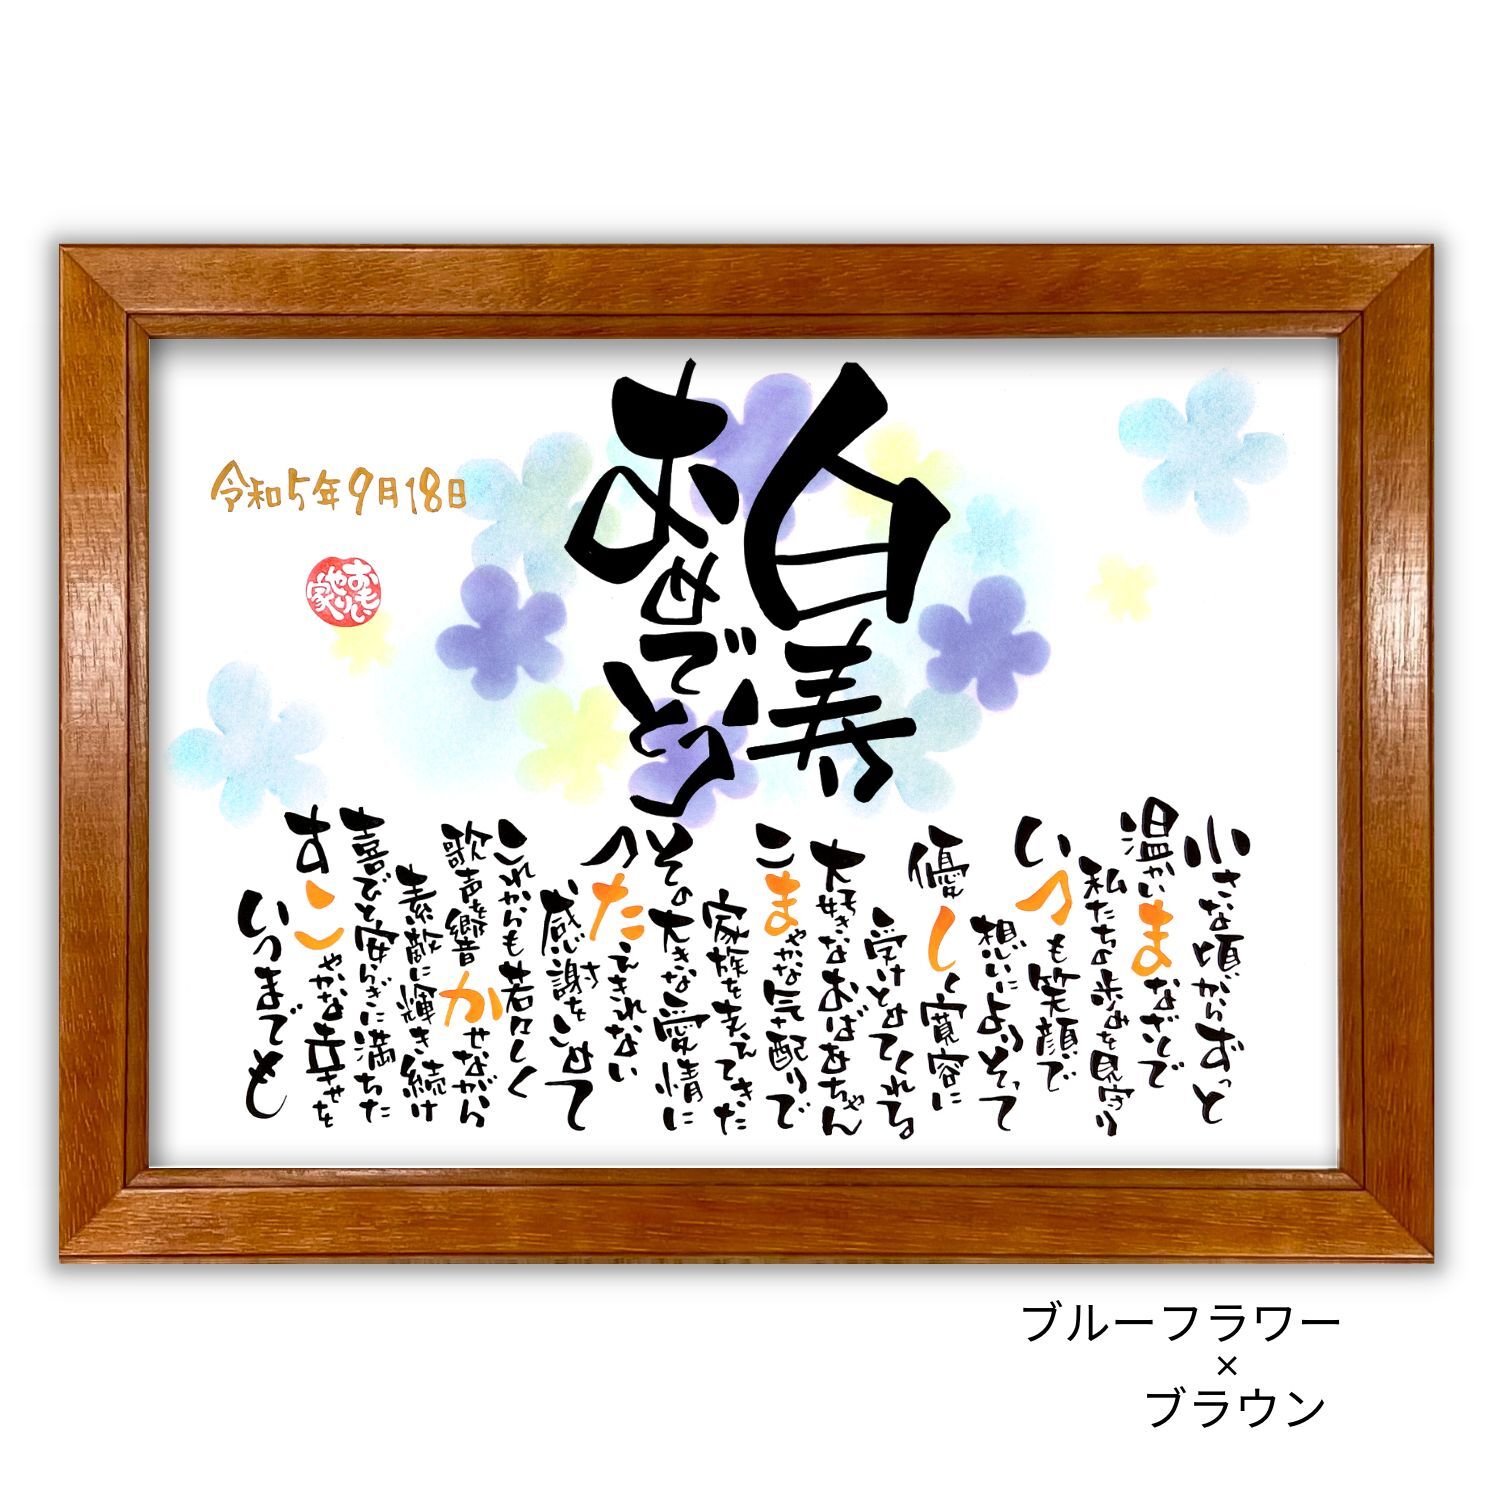 白寿
おめでとう
令和5年9月18日
おもい
やり
家
小さな頃からずっと
温かいまなざしで
私たちの歩みを見守り
いつも笑顔で
想いによりそって
優しく寛容に
受けとめてくれる
大好きなおばあちゃん
こまやかな気配りで
家族を支えてきた
その大きな愛情に
つたえきれない
感謝をこめて
これからも若々しく
歌声を響かせながら
素敵に輝き続け
喜びと安らぎに満ちた
すこやかな幸せを
いつまでも
ブルーフラワー
×
ブラウン